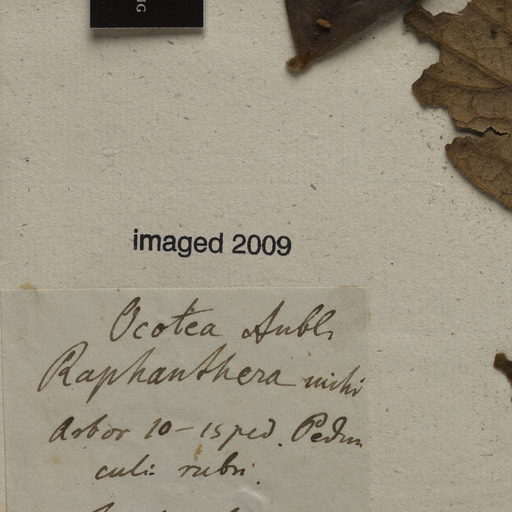 imaged 2009
Ocotea Aubl.
Raphanthera mihi
Arbor 10-15 ped. Pedun
culi: rubri.